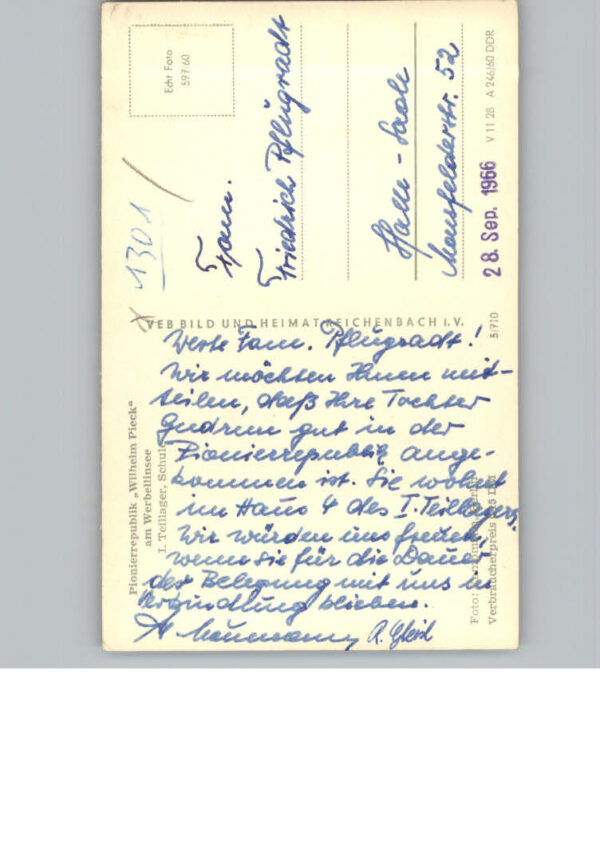 Echt Foto
597/60
1301
Fam.
Friedrich Pflugradt
Halle - Saale
Mansfelderstr. 52
28. Sep. 1966
V 11 28 A 246/60 DDR
VEB BILD UND HEIMAT REICHENBACH I. V.
5/910
Werte Fam. Pflugradt!
Wir möchten Ihnen mit-
teilen, daß Ihre Tochter
Gudrun gut in der
Pionierrepublik ange-
kommen ist. Sie wohnt
im Haus 4 des I. Teillagers.
Wir würden uns freuen,
wenn sie für die Dauer
der Belegung mit uns in
Verbindung blieben.
Pionierrepublik „Wilhelm Pieck“
am Werbellinsee
I. Teillager, Schule
Foto:
Verbraucherpreis